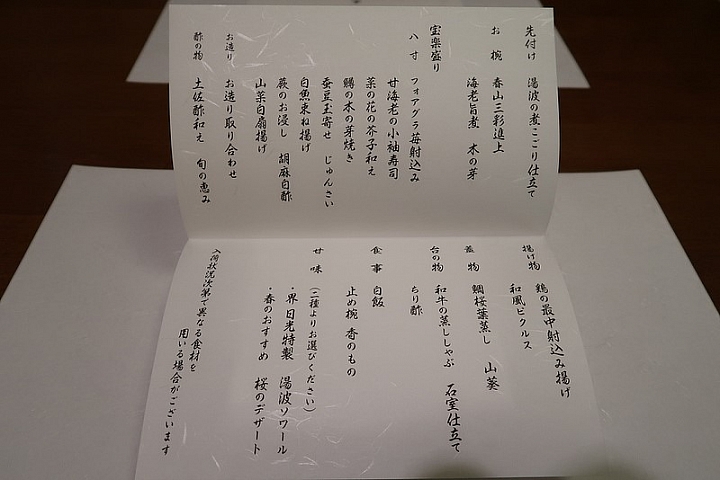 先付け 湯波の煮こごり仕立て
お椀 春山三彩進上
海老旨煮 木の芽
宝楽盛り
八寸 フォアグラ苺射込み
甘海老の小袖寿司
菜の花の芥子和え
鱒の木の芽焼き
蚕豆玉寄せ じゅんさい
白魚東ね揚げ
蕨のお浸し 胡麻白酢
山菜白扇揚げ
お造り お造り取り合わせ
酢の物 土佐酢和え 旬の恵み
揚げ物 鶏の最中射込み揚げ
和風ピクルス
蓋物 鯛桜葉蒸し 山葵
台の物 和牛の蒸ししゃぶ 石室仕立て
ちり酢
食事 白飯
止め椀 香のもの
甘味 (二種よりお選びください)
・界 日光特製 湯波ソワール
・春のおすすめ 桜のデザート
入荷状況次第で異なる食材を
用いる場合がございます